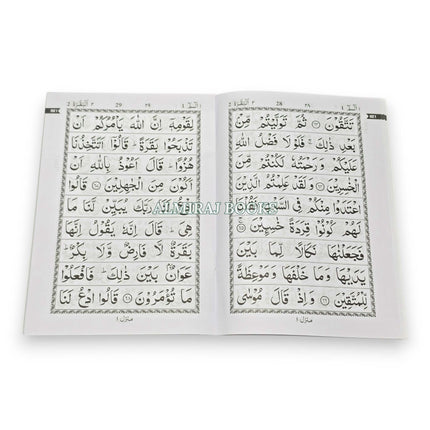 الٓمّٓ ١
28
٢٨
اَلْبَقَرَة ٢
2
تَتَّقُوْنَ ۝٦٣ ثُمَّ تَوَلَّيْتُمْ مِّنْۢ
بَعْدِ ذٰلِكَ ۚ فَلَوْلَا فَضْلُ اللّٰهِ
عَلَيْكُمْ وَرَحْمَتُهٗ لَكُنْتُمْ مِّنَ
الْخٰسِرِيْنَ ۝٦٤ وَلَقَدْ عَلِمْتُمُ الَّذِيْنَ
اعْتَدَوْا مِنْكُمْ فِى السَّبْتِ فَقُلْنَا
لَهُمْ كُوْنُوْا قِرَدَةً خٰسِـِٕيْنَ ۝٦٥
فَجَعَلْنٰهَا نَكَالًا لِّمَا بَيْنَ
يَدَيْهَا وَمَا خَلْفَهَا وَمَوْعِظَةً
لِّلْمُتَّقِيْنَ ۝٦٦ وَاِذْ قَالَ مُوْسٰى
منزل ١
الٓمّٓ ١
29
٢٩
اَلْبَقَرَة ٢
2
لِقَوْمِهٖٓ اِنَّ اللّٰهَ يَاْمُرُكُمْ اَنْ
تَذْبَحُوْا بَقَرَةً ؕ قَالُوْٓا اَتَتَّخِذُنَا
هُزُوًا ؕ قَالَ اَعُوْذُ بِاللّٰهِ اَنْ
اَكُوْنَ مِنَ الْجٰهِلِيْنَ ۝٦٧ قَالُوا
ادْعُ لَنَا رَبَّكَ يُبَيِّنْ لَّنَا مَا
هِىَ ؕ قَالَ اِنَّهٗ يَقُوْلُ اِنَّهَا
بَقَرَةٌ لَّا فَارِضٌ وَّلَا بِكْرٌ ؕ
عَوَانٌۢ بَيْنَ ذٰلِكَ ؕ فَافْعَلُوْا
مَا تُؤْمَرُوْنَ ۝٦٨ قَالُوا ادْعُ لَنَا
منزل ١
ALAHRAJ BOOKS